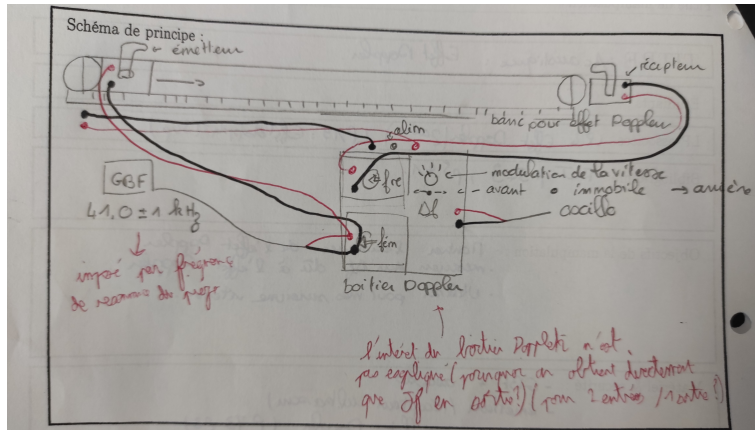 Schéma de principe :
émetteur
récepteur
banc pour effet Doppler
alim
GBF
41,0 ± 1 kHz
fré
modulation de la vitesse
avant • immobile → arrière
Δf
oscillo
fém
boitier Doppler
imposé par fréquence
de resonance du piezo
l'intérêt du boitier Doppler n'est
pas expliqué (pourquoi on obtient directement
que δf en sortie ?) (pour 2 entrées / 1 sortie ?)